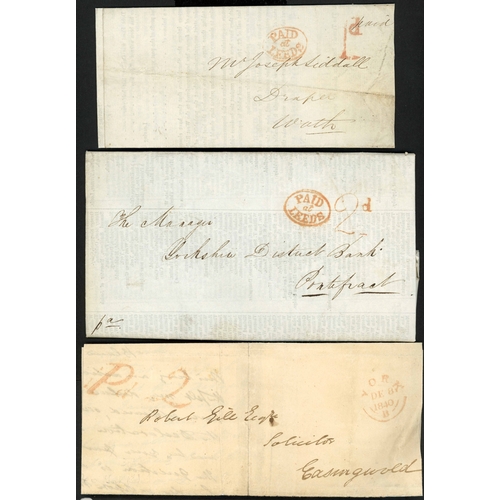 Paid
PAID
at
LEEDS
1d
Mr Joseph Siddall
Draper
Wath
PAID
at
LEEDS
2d
The Manager
Yorkshire District Bank
Pontefract
pd
P 2
YORK
1840
Robert Gill Esqr
Solicitor
Easingwold